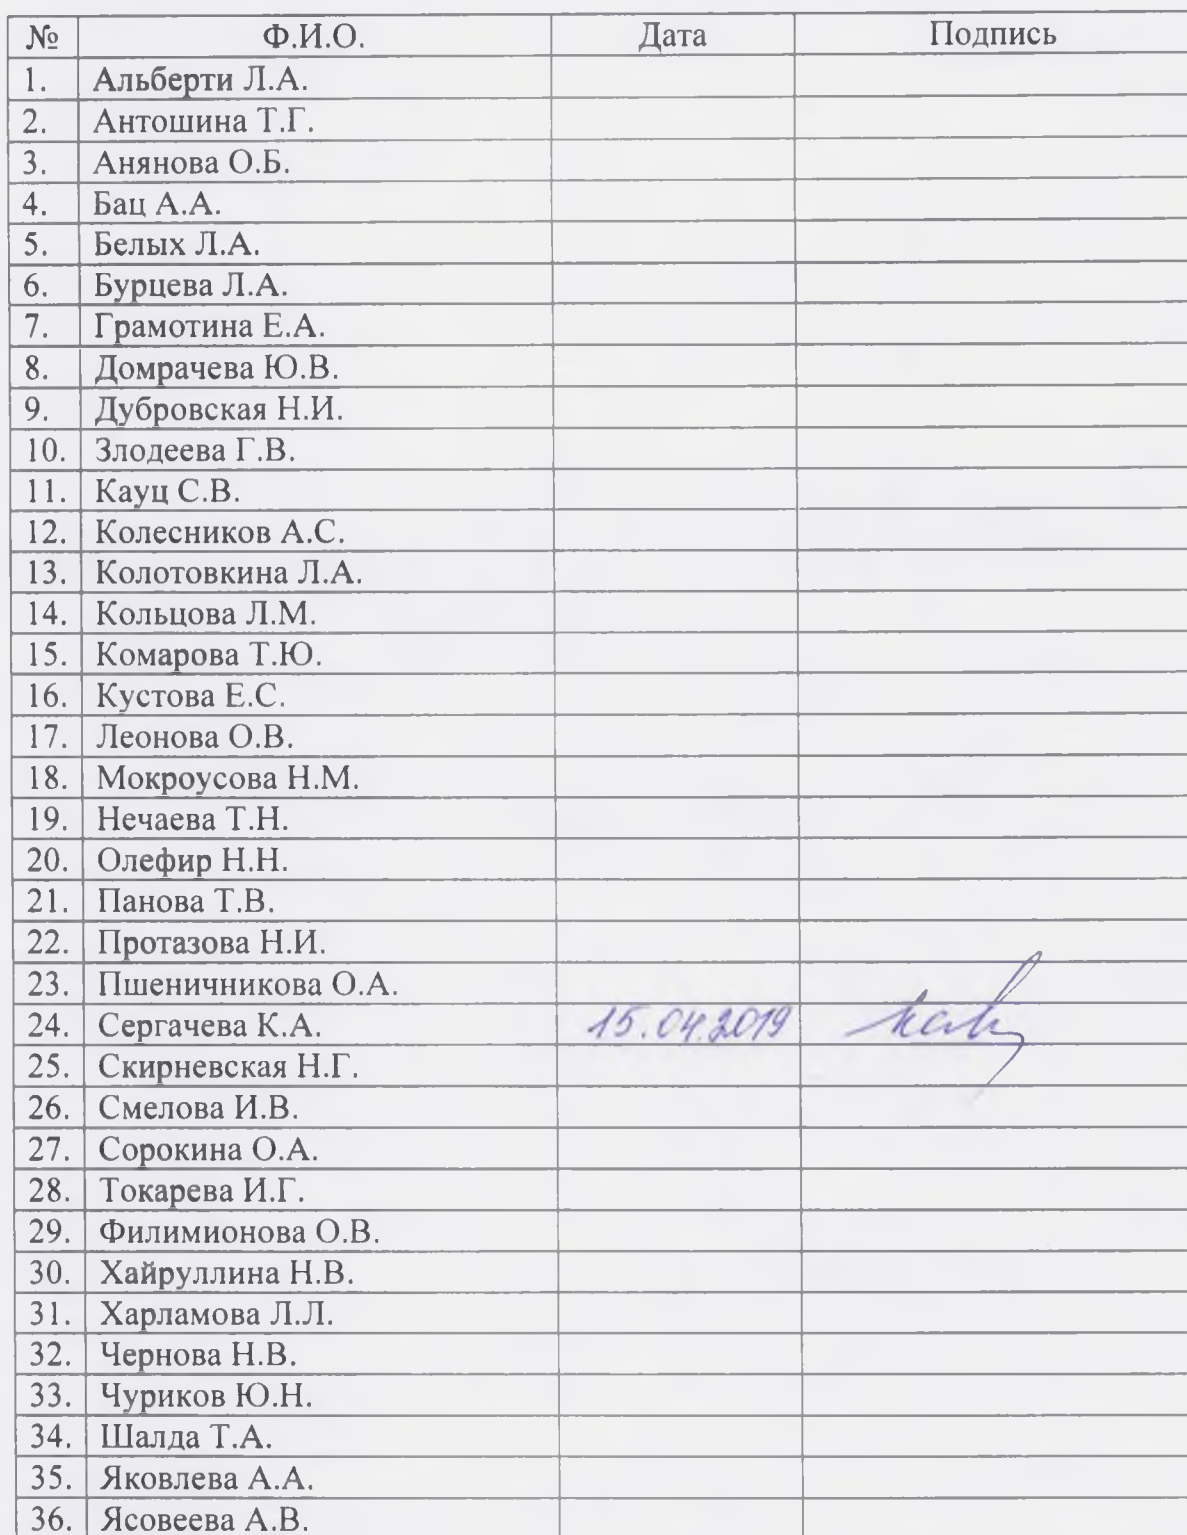 № Ф.И.О. Дата Подпись
1. Альберти Л.А.
2. Антошина Т.Г.
3. Анянова О.Б.
4. Бац А.А.
5. Белых Л.А.
6. Бурцева Л.А.
7. Грамотина Е.А.
8. Домрачева Ю.В.
9. Дубровская Н.И.
10. Злодеева Г.В.
11. Кауц С.В.
12. Колесников А.С.
13. Колотовкина Л.А.
14. Кольцова Л.М.
15. Комарова Т.Ю.
16. Кустова Е.С.
17. Леонова О.В.
18. Мокроусова Н.М.
19. Нечаева Т.Н.
20. Олефир Н.Н.
21. Панова Т.В.
22. Протазова Н.И.
23. Пшеничникова О.А.
24. Сергачева К.А. 15.04.2019
25. Скирневская Н.Г.
26. Смелова И.В.
27. Сорокина О.А.
28. Токарева И.Г.
29. Филимионова О.В.
30. Хайруллина Н.В.
31. Харламова Л.Л.
32. Чернова Н.В.
33. Чуриков Ю.Н.
34. Шалда Т.А.
35. Яковлева А.А.
36. Ясовеева А.В.